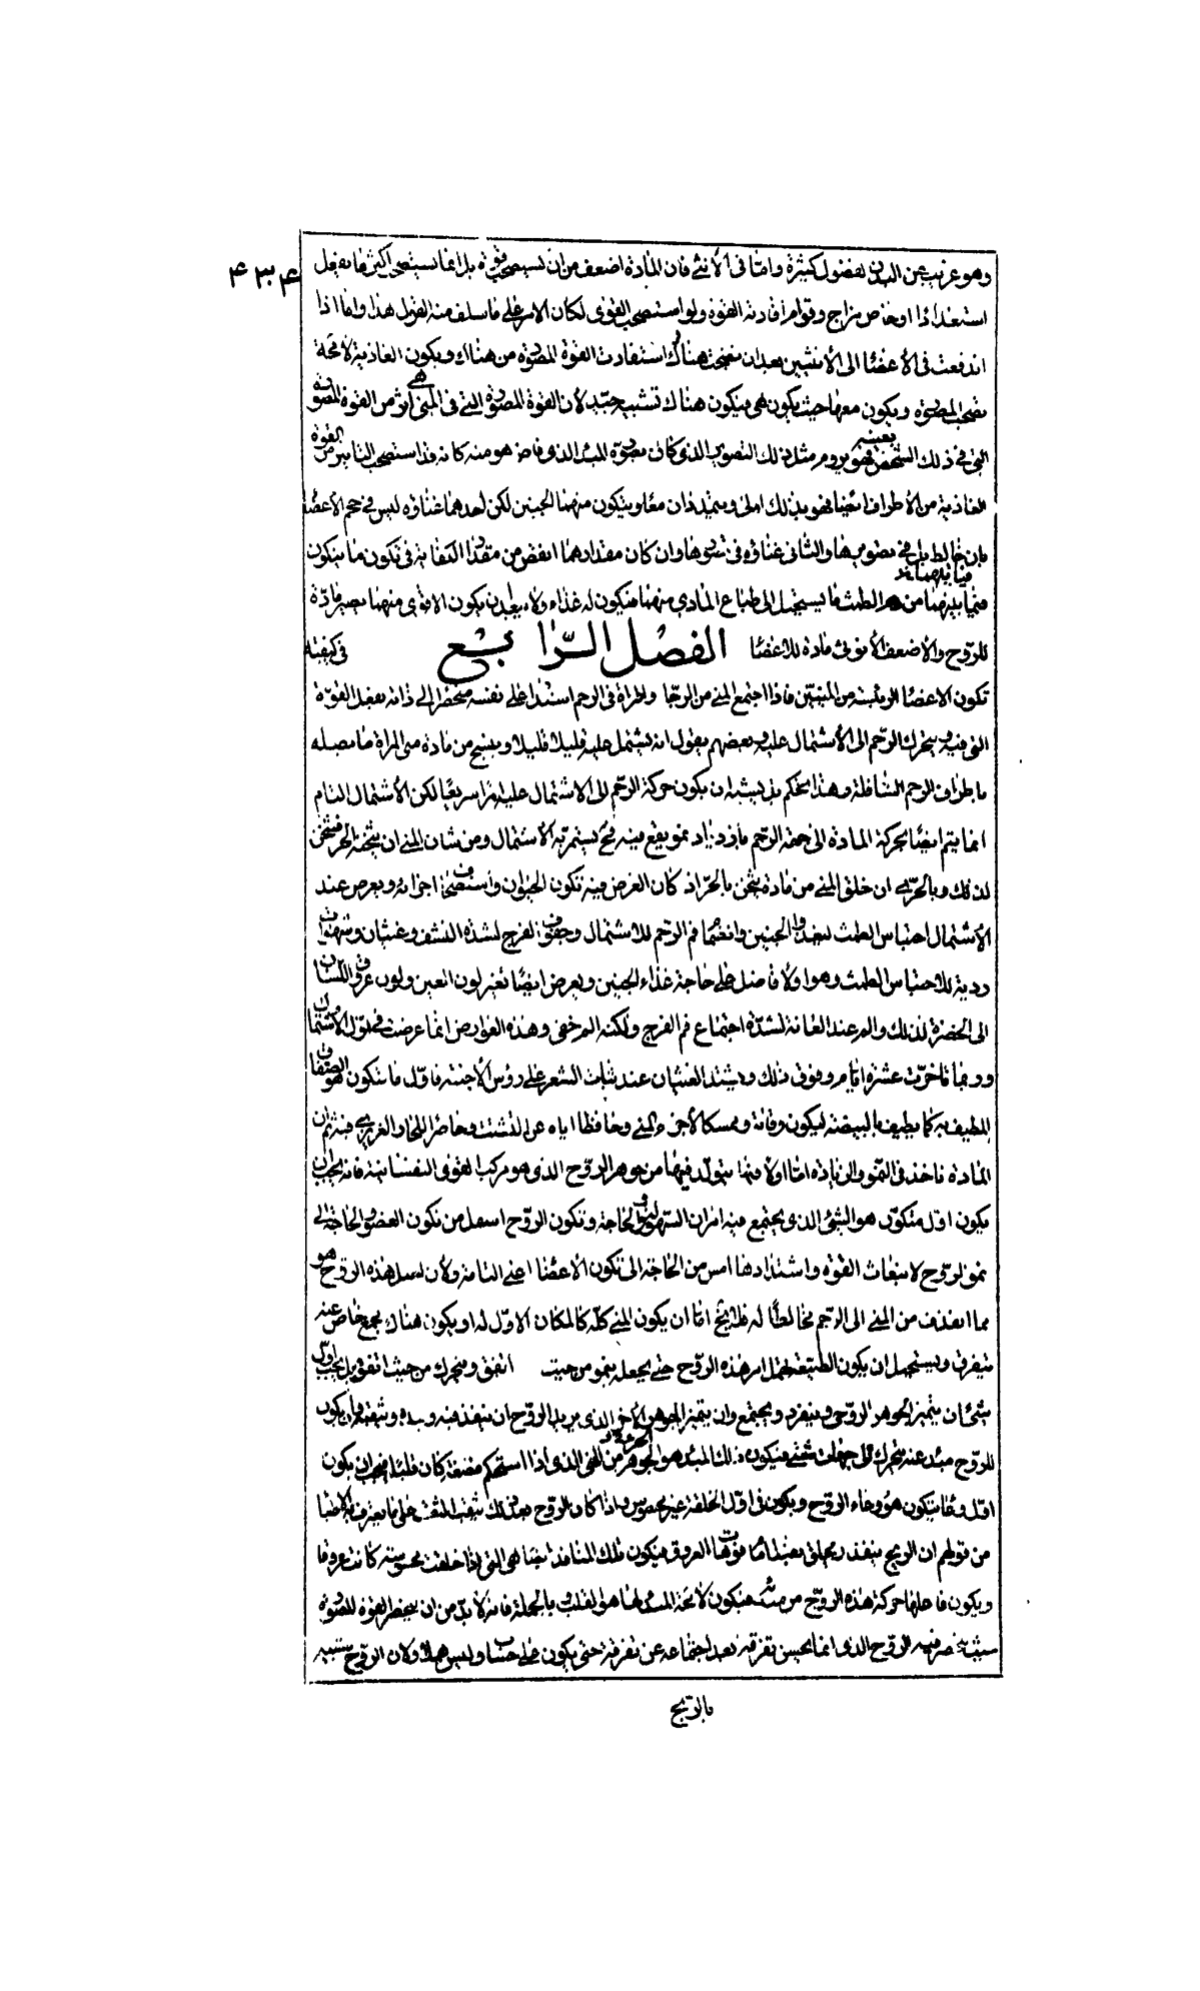 ۴۳۴
وهو غريب عن البدن كفضول كثيرة واما فى الأنثى فان المادة اضعف من ان تستصحب قوة بل انما تستصحب اكثر ما تفعل
استعدادا او خاص مزاج وقوام افادته القوة ولو استصحب القوى لكان الامر على ما سلف منه القول هذا واما اذا
اندفعت فى الأعضا الى الأنثيين بعد ان نضجت هناك استفادت القوة المصورة من هناك ويكون الغاذية لا محة
تصحب المصورة ويكون معها حيث يكون هى فيكون هناك تشبيه جيد لأن القوة المصورة التى فى المنى هى اثر من القوة المصورة
التى فى ذلك الشخص بعينه فهو يروم مثل ذلك التصوير الذى كان بصورة المبدأ الذى فاض هو منه كانه قد استصحب التأثير من القوة
الغاذية من الأطراف ايضا فهو بذلك اولى ويتحدان معا ويتكون منهما الجنين لكن احدهما غناؤه ليس فى حجم الأعضا
بان خالط بل فى تصويرها والثانى غناؤه فى تصورها وان كان مقدارهما انقص من مقدار الكفاية فى تكون ما يتكون
منهما فيما يليهما من الطمث ما يستحيل الى طباع المادى منهما فيكون له غذاء ولا يبعد ان يكون الاقوى منهما يصير مادة
للروح والاضعف الأقوى مادة للأعضا الفصل الرابع فى كيفية
تكون الاعضا الرئيسة من المنيين فاذا اجتمع المنى من الرجا والمراة فى الرحم استدار على نفسه منحصرا الى ذاته بفعل القوة
التى فيه ويتحرك الرحم الى الأشتمال عليه وبعضهم يقول انه يشتمل عليه قليلا قليلا وينتج من مادة منى المراة ما يصبه
باطراف الرحم السافلة وهذا تحكم بل يشبه ان يكون حركة الرحم الى الاشتمال عليه امرا سريعا لكن الأشتمال التام
انما يتم ايضا بحركة المادة الى جهة الرحم بازدياد نمو يقع فيه فح يستمر به الأشتمال ومن شان المنى ان يثخنه الحر فيثخن
لذلك وبالحرى ان خلق المنى من مادة يثخن بالحر اذ كان الغرض فيه تكون الحيوان واستصحا اجزائه ويعرض عند
الأشتمال احتباس الطمث ليغذو الجنين وانضما فم الرحم للاشتمال وجفوف الفرج لشدة النشف وغثيان وشهوات
ردية للاحتباس الطمث وهو اولا فاضل على حاجة غذاء الجنين ويعرض ايضا تغير لون العين ولون عروق اللسان
الى الخضرة لذلك والم عند العانة لشدة اجتماع فم الفرج ولكنه الم خفى وهذه العوارض انما عرضت فى اول الأشتما
وربما تاخرت عشرة ايام وفوق ذلك ويشتد الغثيان عند نبات الشعر على رؤس الأجنة فاول ما يتكون هو الصفاق
المطيف به كما يطيف بالبيضة ليكون وقاية وممسكا لأجزاء المنى وحافظا اياه عن التشتت وحاصرا للحار الغريزى فيه ثم ان
المادة تاخذ فى النمو والزيادة اما اولا فيما يتولد فيها من جوهر الروح الذى هو مركب القوى النفسانية فانه يجب ان
يكون اول متكون هو الشئ الذى يجتمع فيه امران السهولة والحاجة وتكون الروح اسهل من تكون العضو والحاجة الى
نمو الروح لانبعاث القوة واشتدادها امس من الحاجة الى تكون الأعضا اعنى التامة ولأن لمثل هذه الروح هو
مما انقذف من المنى الى الرحم مخالطا له فلا يخ اما ان يكون المنى كله كالمكان الاول له او يكون هناك مجمع خاص عنه
يتفرق ويستحيل ان يكون الطبيعة تهمل امر هذه الروح حتى يجعله ينمو من حيث اتفق ويتحرك من حيث اتفق بل يجب اول
شئ ان يتميز الجوهر الروحى وينفرد ويجتمع وان يتميز الجوهر الأخر الذى يريد الروح ان ينفذ فيه وبه وينفذ وان يكون
للروح مبدأ عنه يتحرك الى جهات شتى فيكون ذلك المبدأ هو الجوهر من المنى الذى اذا استحكم مضغة كان قلبا فيجب ان يكون
اول وعا يتكون هو وعاء الروح ويكون فى اول الخلقة غير محسوس واذا كان الروح بعد ذلك يثقب المثقب على ما يعترف به الاطبا
من قولهم ان الريح ينفذ ويخلق بعد امتا فوهات العروق فيكون تلك المنافذ ايضا هى التى اذا خلقت محسوسة كانت عروقا
ويكون فاعلها حركة هذه الروح من مبدأ فيكون لا محة المبدأ لها هو القلب بالجملة فانه لا بد من ان يحضر القوة المصورة
شيئا يحصر فيه الروح الذى انما يحسن تفرقه بعد اجتماعه عن تفرقة حتى يكون على حساب وليس هملا ولان الروح شبيه
بالريح